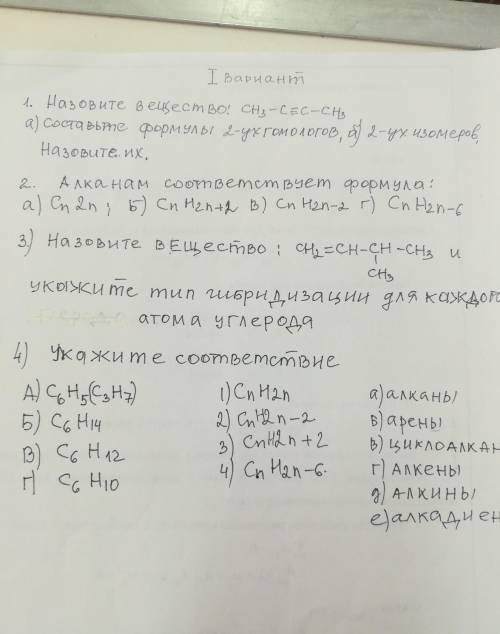 I вариант
1. Назовите вещество: CH₃-C≡C-CH₃
а) Составьте формулы 2-ух гомологов, б) 2-ух изомеров,
Назовите их.
2. Алканам соответствует формула:
а) Cn2n; Б) CnH2n+2 В) CnH2n-2 г) CnH2n-6
3.) Назовите вЕщество: CH₂=CH-CH-CH₃ и
CH₃
укажите тип гибридизации для каждого
атома углерода
4) Укажите соответствие
А) C₆H₅(C₃H₇) 1) CnH2n а) алканы
Б) C₆H₁₄ 2) CnH2n-2 в) арены
В) C₆H₁₂ 3) CnH2n+2 в) циклоалкан
Г) C₆H₁₀ 4) CnH2n-6. г) Алкены
д) Алкины
е) алкадиен